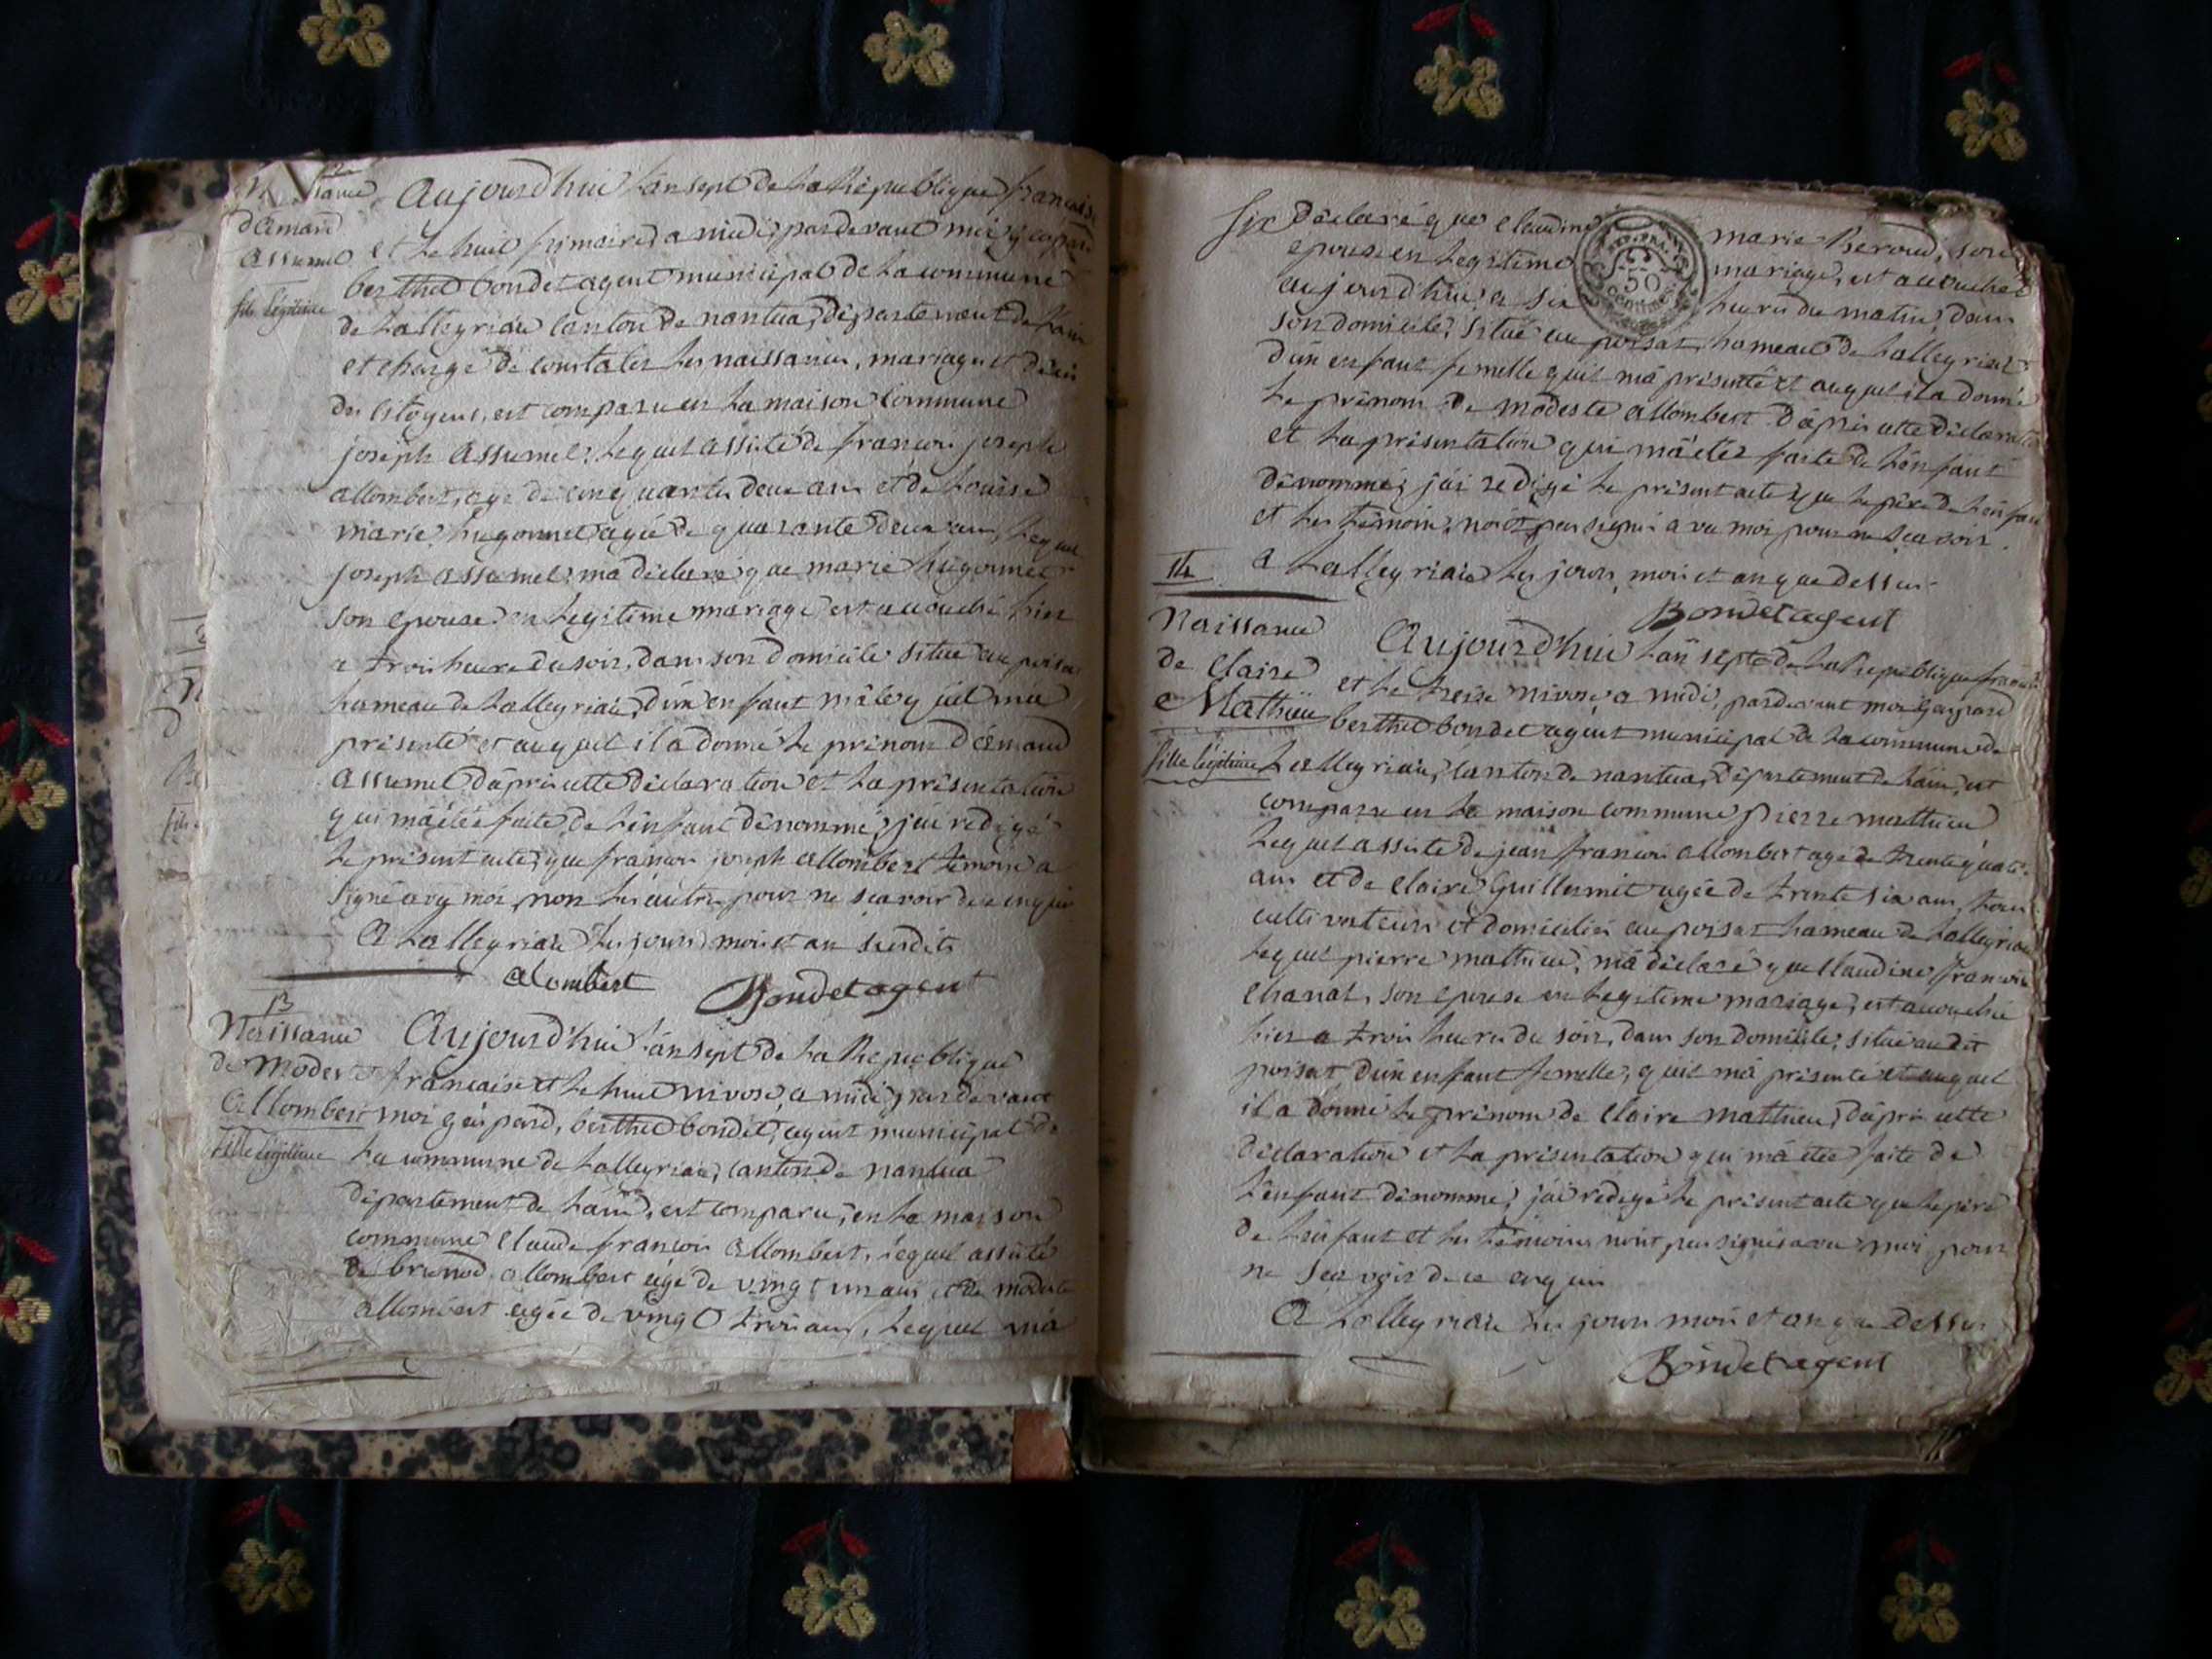 12
Naissance
d'Emand
Assumel
fils légitime
Aujourd'hui l'an sept de la République française
et le huit frimaire a midi, pardevant moi gaspard
berthet bondet agent municipal de la commune
de Lalleyriat canton de nantua, département de l'ain
et chargé de constater les naissances, mariages et décès
des citoyens, est comparu en la maison commune
joseph Assumel, lequel assisté de françois joseph
allombert, agé de cinquante deux ans et de Louise
marie hugonnet agée de quarante deux ans, lequel
joseph assumel, m'a déclaré que marie hugonnet
son epouse en legitime mariage est accouché hier
a trois heure du soir, dans son domicile situé au poisat
hameau de Lalleyriat, d'un enfant mâle qu'il m'a
présenté et auquel il a donné le prénom d'émand
assumel d'après cette déclaration et la présentation
qui m'a étée faite de l'enfant dénommé, j'ai redigé
le présent acte, que françois joseph allombert témoin a
signé avec moi, non les autres pour ne scavoir de ce enquis
A Lalleyriat les jours, mois et an susdits
alombert Bondet agent
13
Naissance
de Modeste
Allombert
fille légitime
Aujourd'hui l'an sept de la Republique
francaise et le huit nivose a midi, pardevant
moi gaspard, berthet bondet, agent municipal de
la commune de Lalleyriat, canton de nantua
département de l'ain, est comparu, en la maison
commune claude françois allombert, lequel assisté
de brunod, allombert agé de vingt un ans et de modeste
allombert agée de vingt trois ans, lequel m'a
six déclaré que claudine marie Beroud, son
epouse en legitime mariage, est accouchée
aujourd'hui, a six heures du matin, dans
50
centimes
son domicile, situé au poisat, hameau de Lalleyriat
d'un enfant femelle qu'il m'a présenté et auquel il a donné
le prénom de modeste allombert d'après cette déclaration
et la présentation qui m'a étée faite de l'enfant
dénommé, j'ai redigé le présent acte que le père de l'enfant
et les témoins, n'ont pas signés avec moi pour ne scavoir.
A Lalleyriat les jours, mois et an que dessus
Bondet agent
14
Naissance
de Claire
Mathieu
fille légitime
Aujourd'hui l'an sept de la Republique française
et le treize nivose, a midi, pardevant moi Gaspard
berthet bondet agent municipal de la commune de
Lalleyriat, canton de nantua, département de l'ain, est
comparu en la maison commune pierre mathieu
lequel assisté de jean françois allombert agé de trente quatre
ans et de claire Guillermet agée de trente six ans, tous
cultivateurs et domiciliés au poisat hameau de Lalleyriat
lequel pierre mathieu, m'a déclaré que claudine françoise
chanal, son epouse en legitime mariage, est accouchée
hier a trois heures du soir, dans son domicile, situé au dit
poisat d'un enfant femelle, qu'il m'a présenté et auquel
il a donné le prénom de claire mathieu, d'après cette
déclaration et la présentation qui m'a étée faite de
l'enfant dénommé, j'ai redigé le présent acte que le père
de l'enfant et les témoins n'ont pas signés avec moi pour
ne scavoir de ce enquis
A Lalleyriat les jours mois et an que dessus
Bondet agent